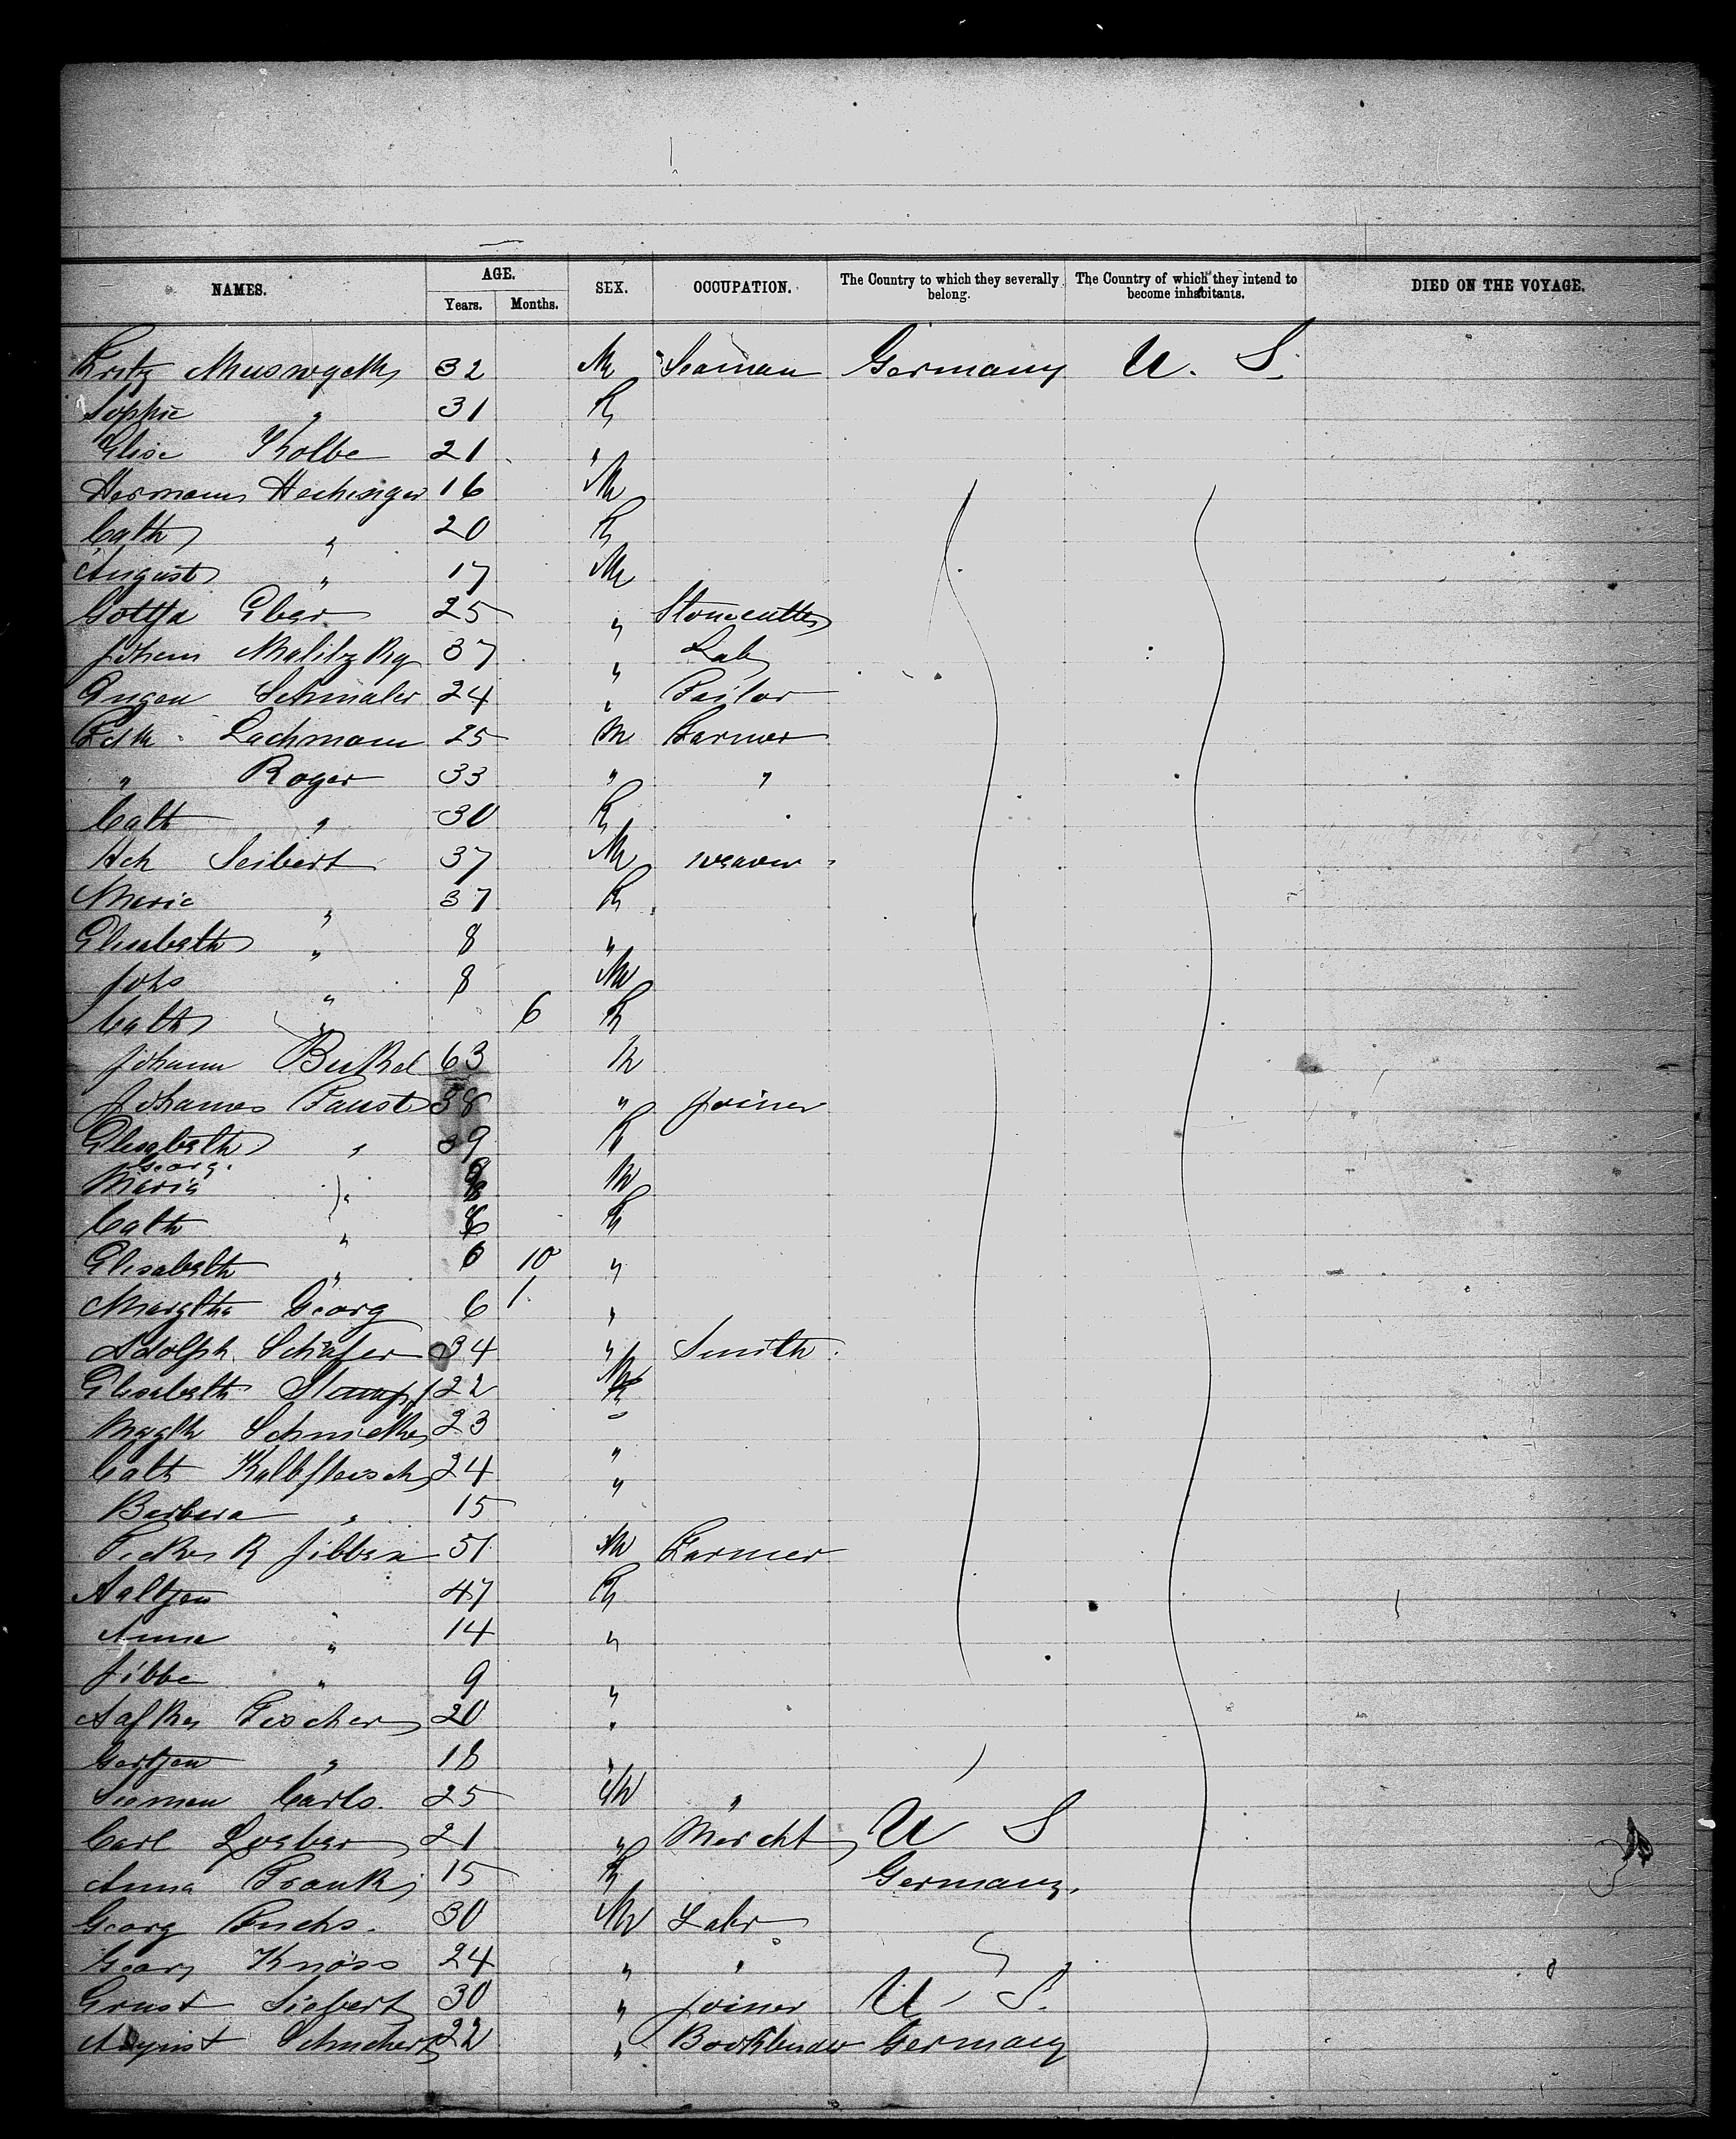 NAMES. AGE. SEX. OCCUPATION. The Country to which they severally belong. The Country of which they intend to become inhabitants. DIED ON THE VOYAGE.
Years. Months.
Fritz 32 M Seaman Germany U. S.
Sophie " 31 F
Elise Kolbe 21 "
Hermann Hechinger 16 M
Cath " 20 F
August " 17 M
Eber 25 " Stonecutter
Johann 37 " Lab
Eugen Schmaler 24 " Tailor
Lachmann 25 M Farmer
" Roger 33 " "
Cath " 30 F
Hch Seibert 37 M weaver
Marie " 37 F
Elisabeth " 8 "
Johs " 8 M
Cath " 6 F
Johann 63 M
Johannes Faust 38 " Joiner
Elisabeth " 39 F
Georg.
Maria " 8 M
Cath " 6 F
Elisabeth " 6 10 "
Margtha Georg 6 1. "
Adolph Schäfer 34 " Smith
Elisabeth Stumpf 22 F
23 "
Cath Kalbfleisch 24 "
Barbara " 15 "
R Jibben 51 M Farmer
Aaltjen 47 F
Anna " 14 "
Jibbe " 9 "
Fischer 20 "
Gertjen " 18 "
Siemen Carls. 25 M "
Carl Loeber 21 " Mercht U S
Anna Frank 15 F Germany.
Georg Fuchs. 30 M Labr
Georg Knöss 24 " "
Ernst Siebert 30 " Joiner U. S.
August Schuchert 22 " Bookbinder Germany